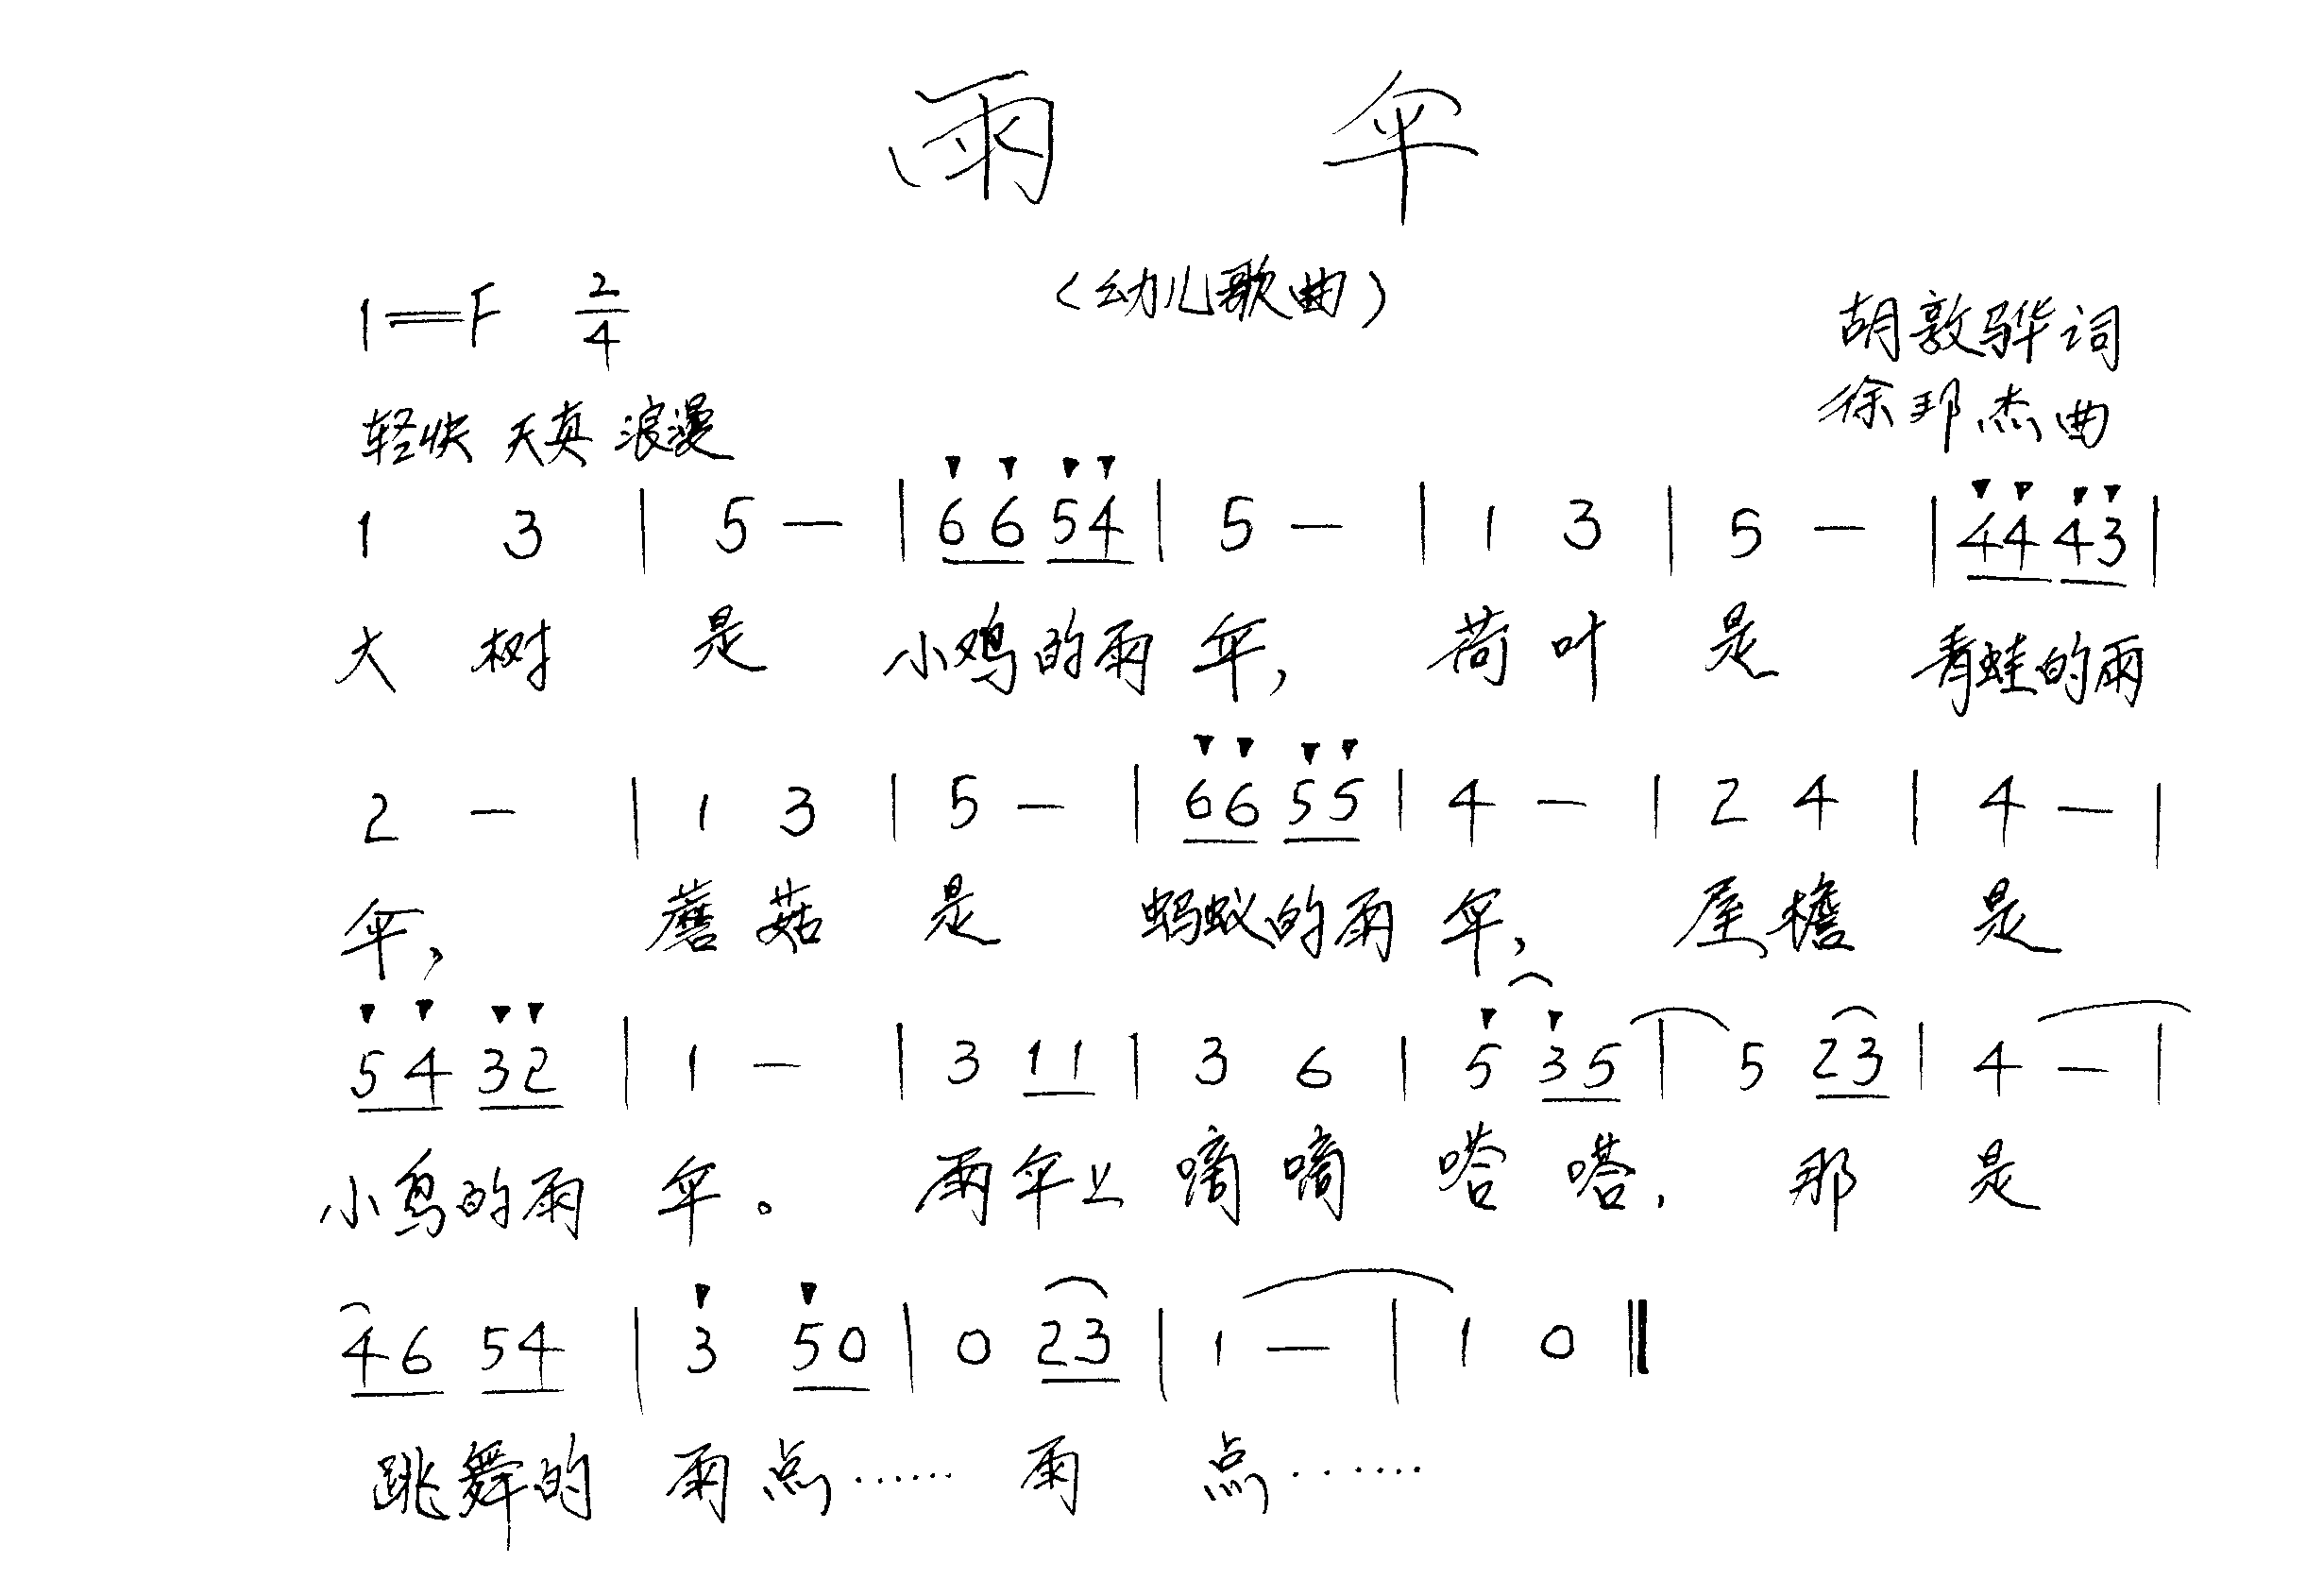 雨 伞
（幼儿歌曲）
1=F 2/4
胡敦骅词
轻快 天真 浪漫
徐邦杰曲
1 3 | 5 — | 66 54 | 5 — | 1 3 | 5 — | 44 43 |
大 树 是 小鸡的雨 伞， 荷 叶 是 青蛙的雨
2 — | 1 3 | 5 — | 66 55 | 4 — | 2 4 | 4 — |
伞， 蘑 菇 是 蚂蚁的雨 伞， 屋 檐 是
54 32 | 1 — | 3 11 | 3 6 | 5 35 | 5 23 | 4 — |
小鸟的雨 伞。 雨伞上 嘀 嘀 嗒 嗒， 那 是
46 54 | 3 50 | 0 23 | 1 — | 1 0 ‖
跳舞的 雨 点…… 雨 点……